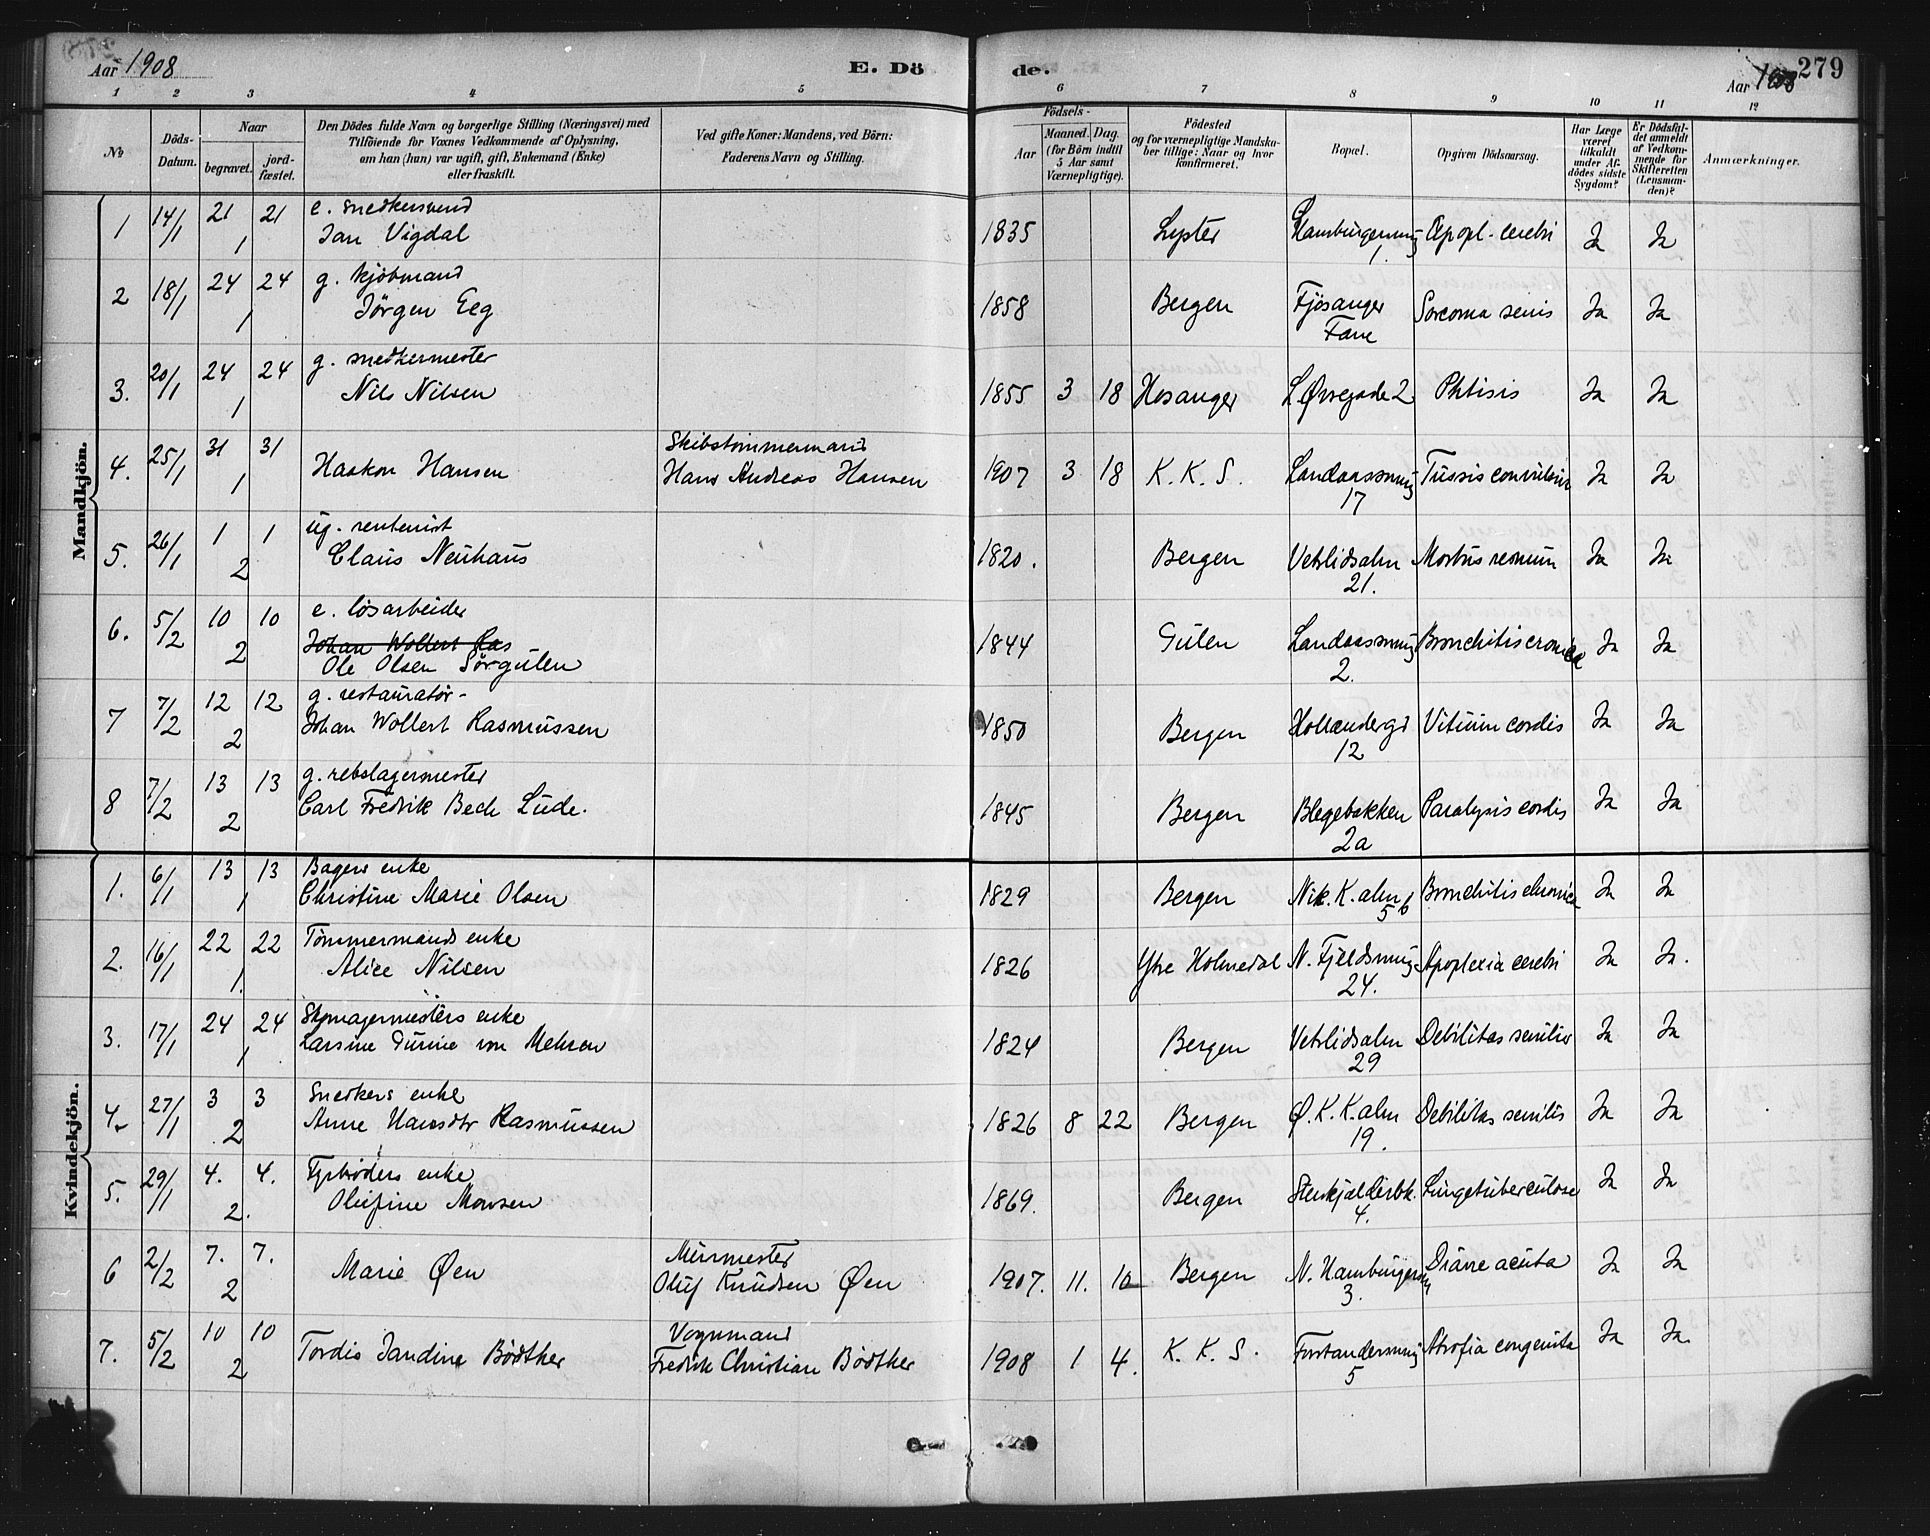 Aar 1908
E. Dö
de.
Aar 1908
279
1 2 3 4 5 6 7 8 9 10 11 12
No
Döds-Datum.
Naar
begravet.
jordfæstet.
Den Dödes fulde Navn og borgerlige Stilling (Næringsvei) med
Tilföiende for Voxnes Vedkommende af Oplysning,
om han (hun) var ugift, gift, Enkemand (Enke)
eller fraskilt.
Ved gifte Koner: Mandens, ved Börn:
Faderens Navn og Stilling.
Födsels-
Aar
Maaned. Dag.
(for Börn indtil
5 Aar samt
Værnepligtige).
Födested
og for værnepligtige Mandskaber tillige: Naar og hvor
konfirmeret.
Bopæl.
Opgiven Dödsaarsag.
Har Læge
været
tilkaldt
under Afdödes sidste
Sygdom?
Er Dödsfaldet anmeldt
af Vedkommende for
Skifteretten
(Lensmanden)?
Anmærkninger.
Mandkjön.
1 14/1 21/1 21 e. snedkersvend
Jan Vigdal 1835 Lyster Hamburgersmug 1. Apopl. cerebri Ja Ja
2 18/1 24/1 24 g. kjöbmand
Jörgen Eeg 1858 Bergen Fjösanger Fane Sarcoma Ja Ja
3. 20/1 24/1 24 g. snedkermester
Nils Nilsen 1855 3 18 Hosanger L. Øvregade 2 Phtisis Ja Ja
4. 25/1 31/1 31 Haakon Hansen
Skibstømmermand
Hans Andreas Hansen 1907 3 18 K. K. S. Landaassmug 17 Tussis convulsiva Ja Ja
5. 26/1 1/2 1 ug. rentenist
Claus Neuhaus 1820. Bergen Vetrlidsalm 21. Morbus renum Ja Ja
6. 5/2 10/2 10 e. løsarbeider
Johan Wollert Ras
Ole Olsen Sörgulen 1844 Gulen Landaassmug 2. Bronchitis cronica Ja Ja
7 7/2 12/2 12 g. restauratør
Johan Wollert Rasmussen 1850 Bergen Hollendergd 12 Vitium cordis Ja Ja
8 7/2 13/2 13 g. rebslagermester
Carl Fredrik Bech Lude. 1845 Bergen Blegebakken 2a Paralysis cordis Ja Ja
Kvindekjön.
1. 6/1 13/1 13 Bagers enke
Christine Marie Olsen 1829 Bergen Nik. K. alm 5 b Bronchitis chronica Ja Ja
2. 16/1 22/1. 22 Tømmermands enke
Alice Nilsen 1826 Ytre Holmedal N. Fjeldsmug 24. Apoplexia cerebri Ja Ja.
3. 17/1 24/1 24 Skomagermesters enke
Larsine von Mehren 1824 Bergen Vetrlidsalm 29 Debilitas senilis Ja Ja
4. 27/1 3/2 3 Snedkers enke
Anne Hansdtr Rasmussen 1826 8 22 Bergen Ø. K. K. alm 19. Debilitas senilis Ja Ja
5. 29/1 4./2. 4. Fyrbøders enke
Olufine Monsen 1869. Bergen Stenkjelderbk. 4. Lungetuberculose Ja Ja
6 2/2 7./2 7. Marie Øen
Murmester
Oluf Knudsen Øen 1907. 11. 10 Bergen N. Hamburgersmug 3. Diarre acuta Ja Ja
7. 5/2 10/2 10 Tordis Jandine Bødtker
Vognmand
Fredrik Christian Bødtker 1908 1 4. K. K. S. Forstandersmug 5 Atrofia congenita Ja Ja.